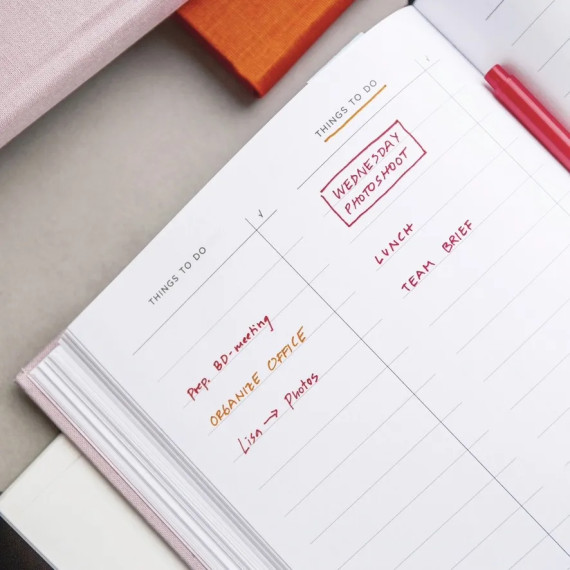 THINGS TO DO
Prep. BD-meeting
ORGANIZE OFFICE
Lisa → Photos
THINGS TO DO
WEDNESDAY
PHOTOSHOOT
LUNCH
TEAM BRIEF